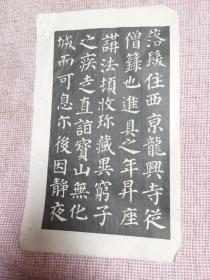 落髮住西京龍興寺從
僧籙也進具之年昇座
講法頓收珍藏異窮子
之疾走直詣寶山無化
城而可息尔後因靜夜